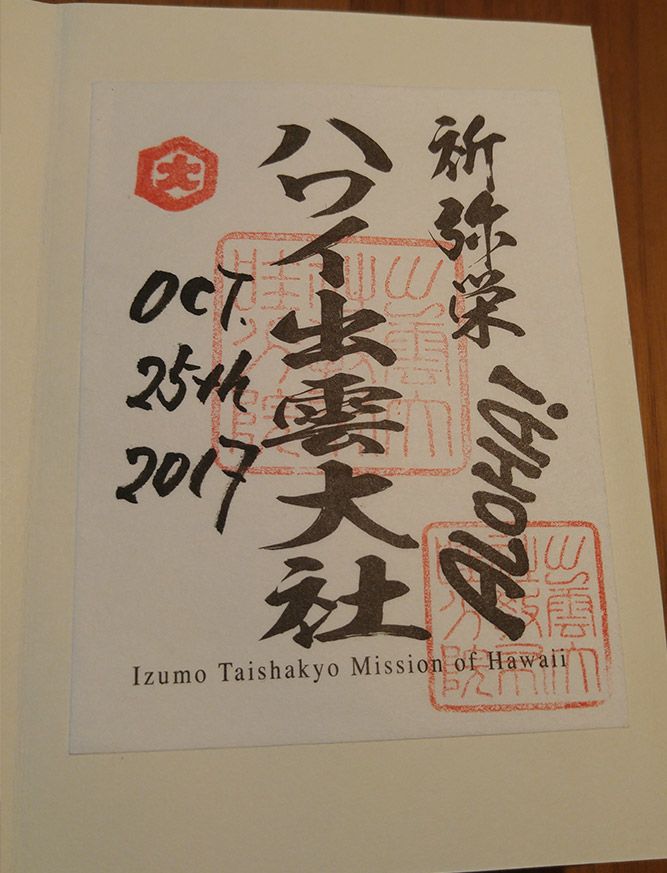 祈弥栄
ALOHA!
ハワイ出雲大社
大
OCT.
25th
2017
Izumo Taishakyo Mission of Hawaii